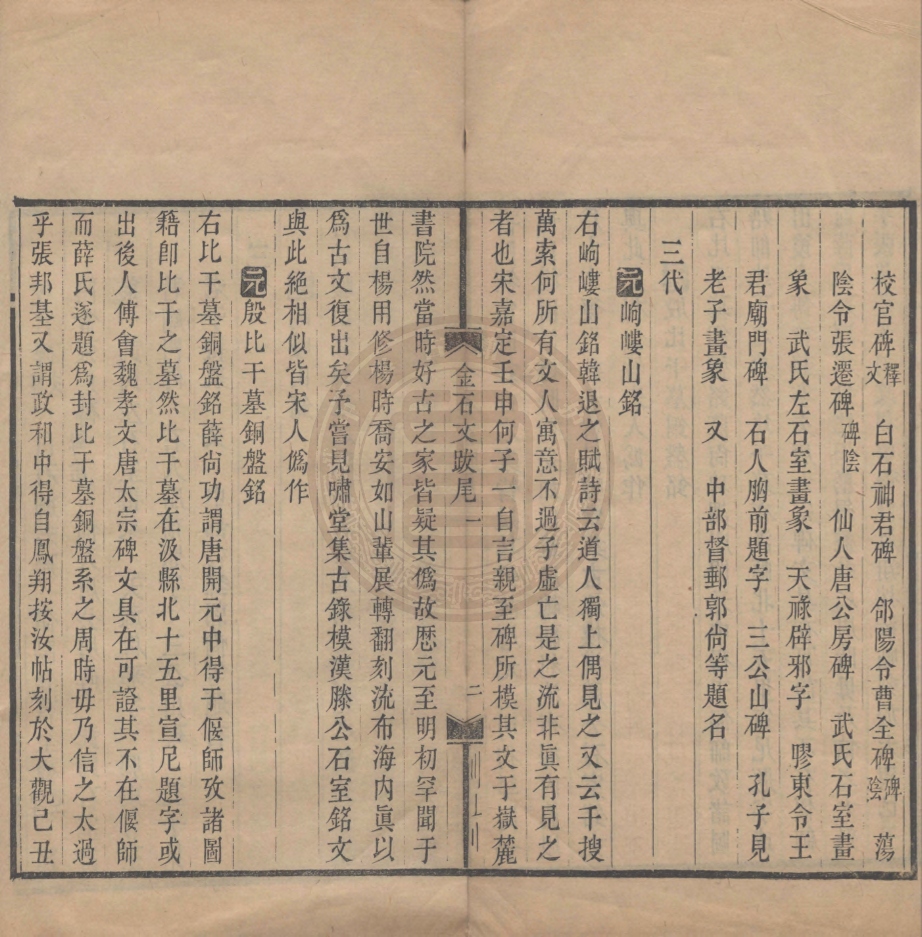 校官碑釋文　白石神君碑　郃陽令曹全碑碑陰　蕩
陰令張遷碑碑陰　仙人唐公房碑　武氏石室畫
象　武氏左石室畫象　天祿辟邪字　膠東令王
君廟門碑　石人胸前題字　三公山碑　孔子見
老子畫象　又　中部督郵郭尙等題名
三代
元岣嶁山銘
右岣嶁山銘韓退之賦詩云道人獨上偶見之又云千搜
萬索何所有文人寓意不過子虛亡是之流非眞有見之
者也宋嘉定壬申何子一自言親至碑所模其文于嶽麓
金石文跋尾一　二
書院然當時好古之家皆疑其僞故歷元至明初罕聞于
世自楊用修楊時喬安如山輩展轉翻刻流布海内眞以
爲古文復出矣予嘗見嘯堂集古錄模漢滕公石室銘文
與此絕相似皆宋人僞作
元殷比干墓銅盤銘
右比干墓銅盤銘薛尙功謂唐開元中得于偃師攷諸圖
籍卽比干之墓然比干墓在汲縣北十五里宣尼題字或
出後人傅會魏孝文唐太宗碑文具在可證其不在偃師
而薛氏遂題爲封比干墓銅盤系之周時毋乃信之太過
乎張邦基又謂政和中得自鳳翔按汝帖刻於大觀己丑